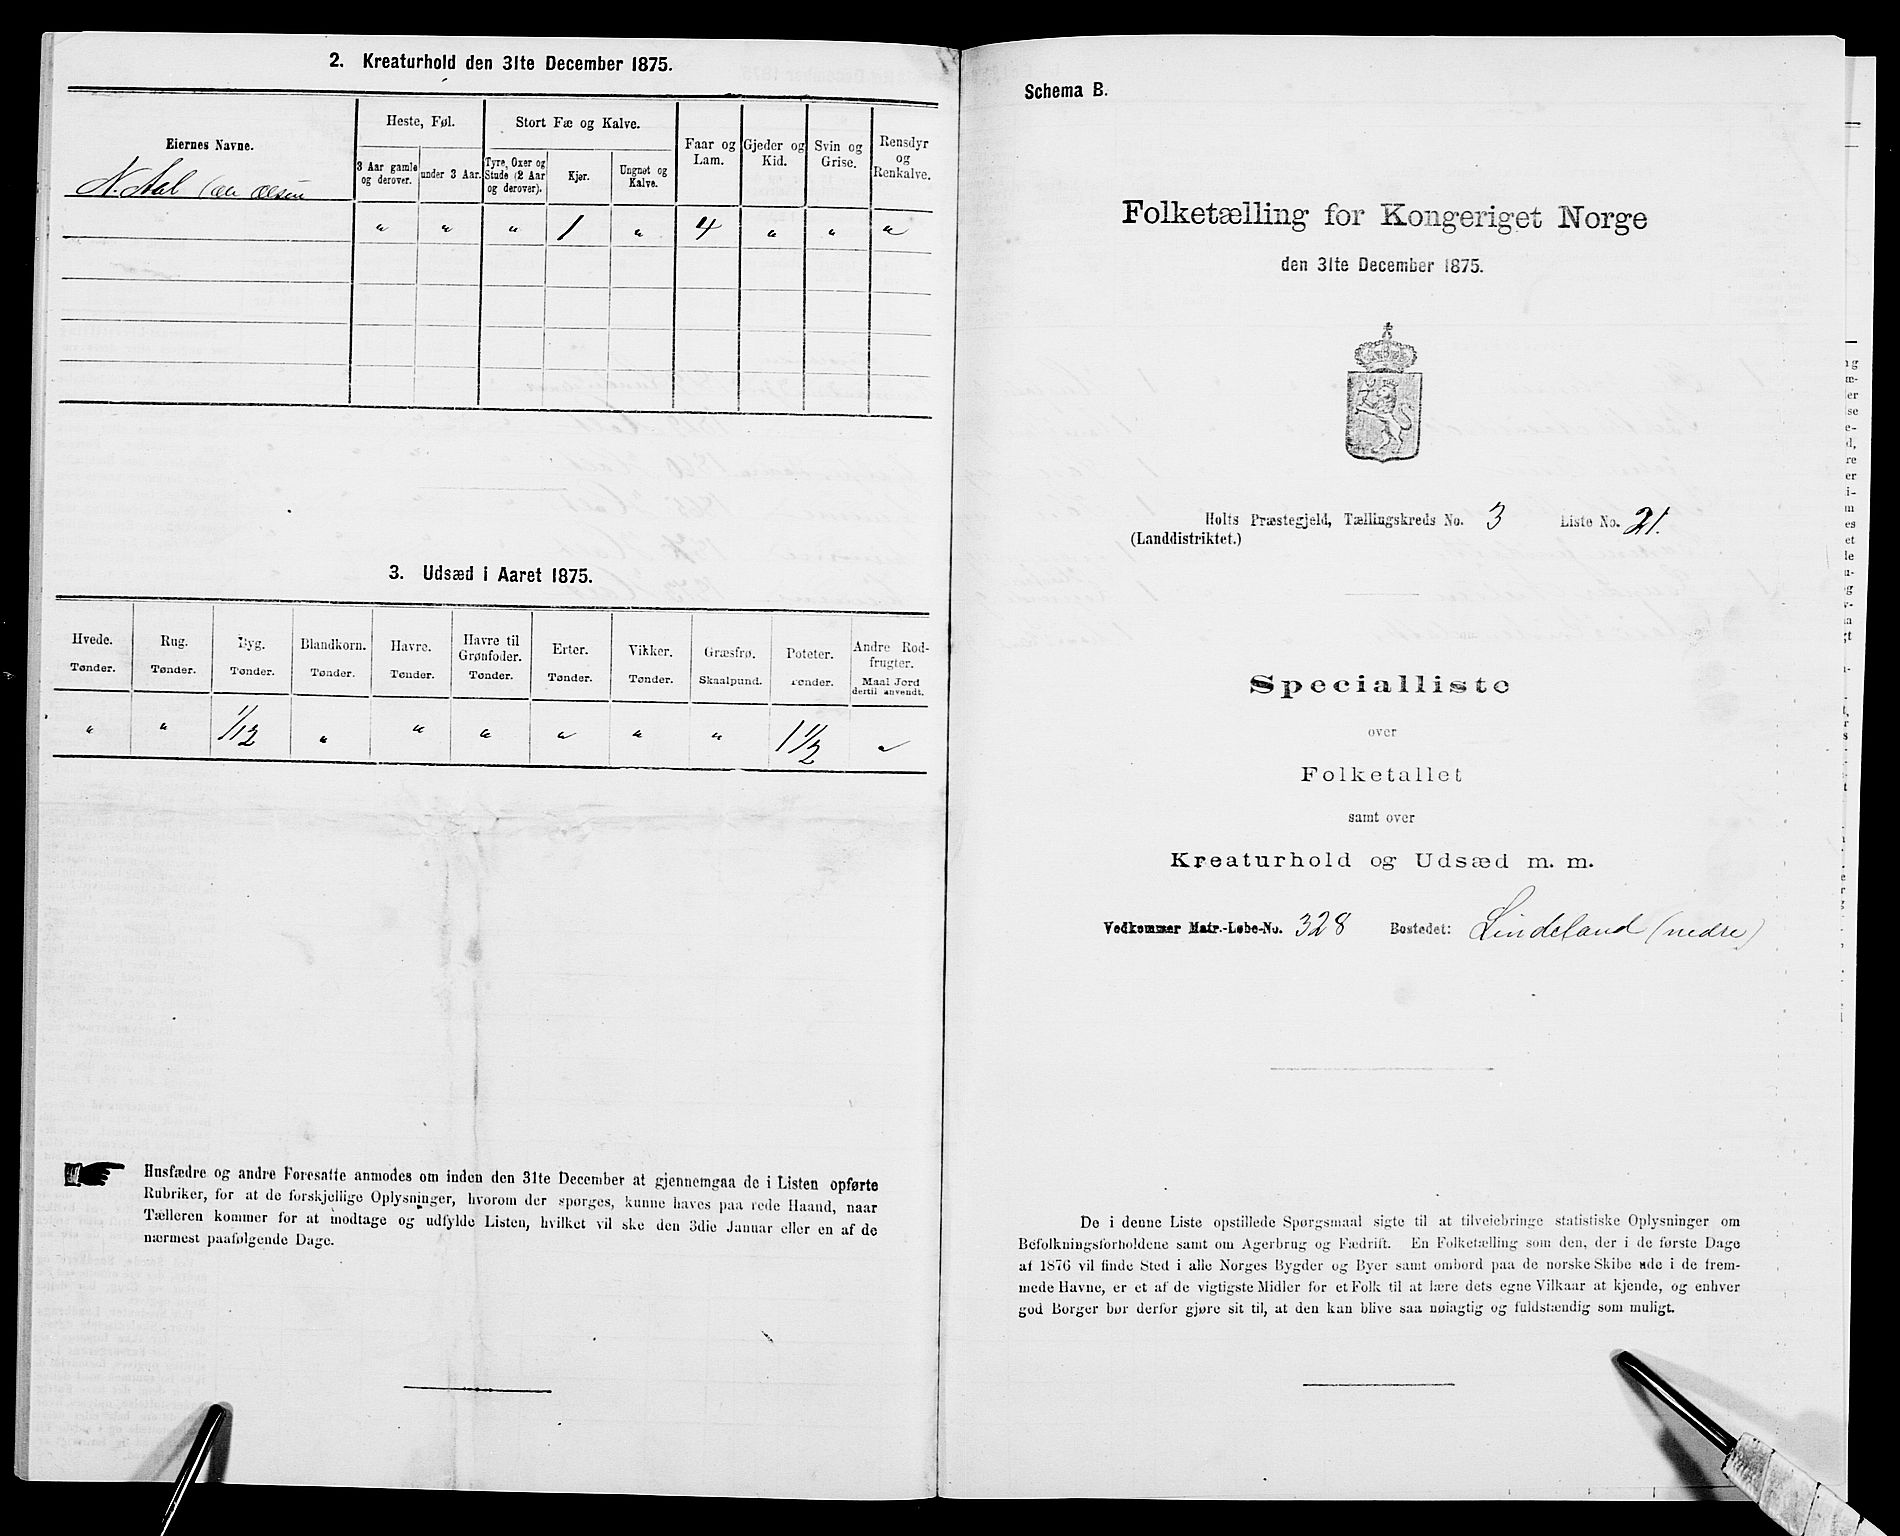 2. Kreaturhold den 31te December 1875.
Eiernes Navne.
Heste, Føl.
Stort Fæ og Kalve.
Faar og Lam.
Gjeder og Kid.
Svin og Grise.
Rensdyr og Renkalve.
3 Aar gamle og derover.
under 3 Aar.
Tyre, Oxer og Stude (2 Aar og derover).
Kjør.
Ungnøt og Kalve.
N. Aal
" " " 1 " 4 " " "
3. Udsæd i Aaret 1875.
Hvede. Rug. Byg. Blandkorn. Havre. Havre til Grønfoder. Erter. Vikker. Græsfrø. Poteter. Andre Rodfrugter.
Tønder. Tønder. Tønder. Tønder. Tønder. Tønder. Tønder. Tønder. Skaalpund. Tønder. Maal Jord dertil anvendt.
" " 1/12 " " " " " " 1 1/2 "
Husfædre og andre Foresatte anmodes om inden den 31te December at gjennemgaa de i Listen opførte
Rubriker, for at de forskjellige Oplysninger, hvorom der spørges, kunne haves paa rede Haand, naar
Tælleren kommer for at modtage og udfylde Listen, hvilket vil ske den 3die Januar eller en af de
nærmest paafølgende Dage.
Schema B.
Folketælling for Kongeriget Norge
den 31te December 1875.
Holts Præstegjeld, Tællingskreds No. 3 Liste No. 21.
(Landdistriktet.)
Specialliste
over
Folketallet
samt over
Kreaturhold og Udsæd m. m.
Vedkommer Matr.-Løbe-No. 328 Bostedet: Lindeland (nedre)
De i denne Liste opstillede Spørgsmaal sigte til at tilveiebringe statistiske Oplysninger om
Befolkningsforholdene samt om Agerbrug og Fædrift. En Folketælling som den, der i de første Dage
af 1876 vil finde Sted i alle Norges Bygder og Byer samt ombord paa de norske Skibe ude i de frem-
mede Havne, er et af de vigtigste Midler for et Folk til at lære dets egne Vilkaar at kjende, og enhver
god Borger bør derfor gjøre sit til, at den kan blive saa nøiagtig og fuldstændig som muligt.